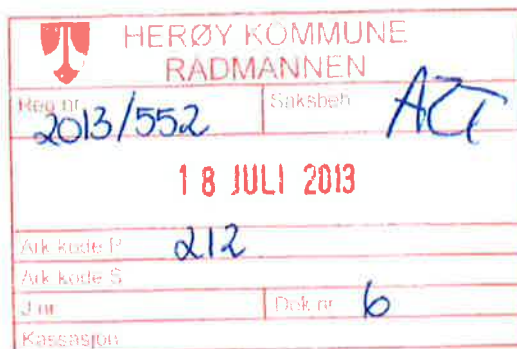 HERØY KOMMUNE
RÅDMANNEN
Reg nr. 2013/552 Saksbeh.
18 JULI 2013
Ark kode P 212
Ark kode S
J nr. Dok nr. 6
Kassasjon